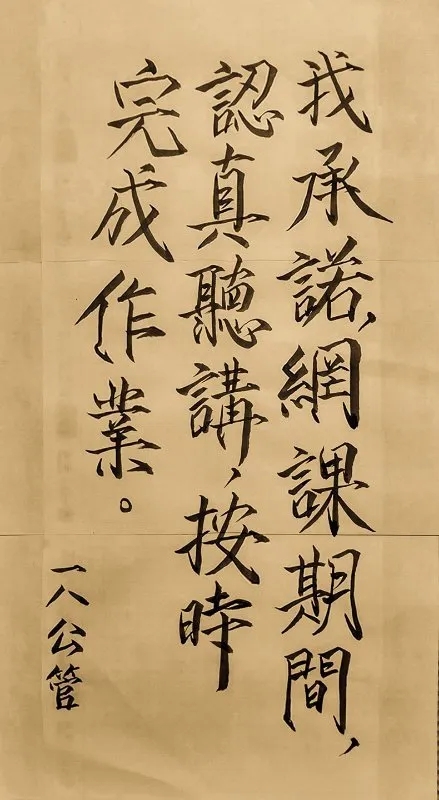 我承諾,網課期間,
認真聽講,按時
完成作業。
一八公管